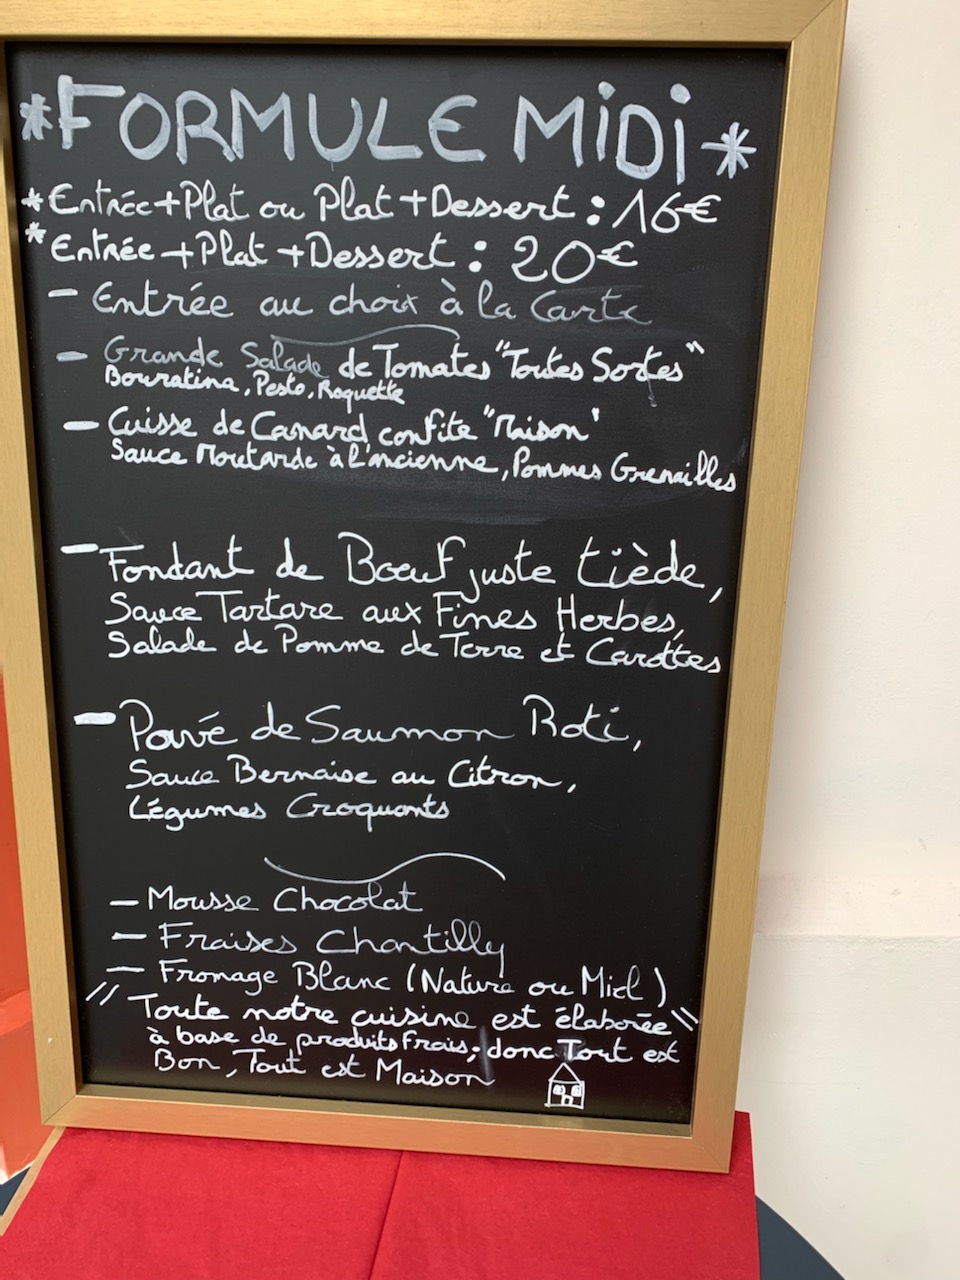 *FORMULE MiDi*
*Entrée+Plat ou Plat+Dessert : 16€
*Entrée+Plat+Dessert : 20€
- Entrée au choix à la Carte
- Grande Salade de Tomates "Toutes Sortes"
Bouratina, Pesto, Roquette
- Cuisse de Canard confite "Maison"
Sauce Moutarde à l'ancienne, Pommes Grenailles
- Fondant de Boeuf juste tiède,
Sauce Tartare aux Fines Herbes,
Salade de Pomme de Terre et Carottes
- Pavé de Saumon Roti,
Sauce Bernaise au Citron,
Légumes Croquants
- Mousse Chocolat
- Fraises Chantilly
- Fromage Blanc (Nature ou Miel)
"Toute notre cuisine est élaborée"
à base de produits frais, donc Tout est
Bon, Tout est Maison